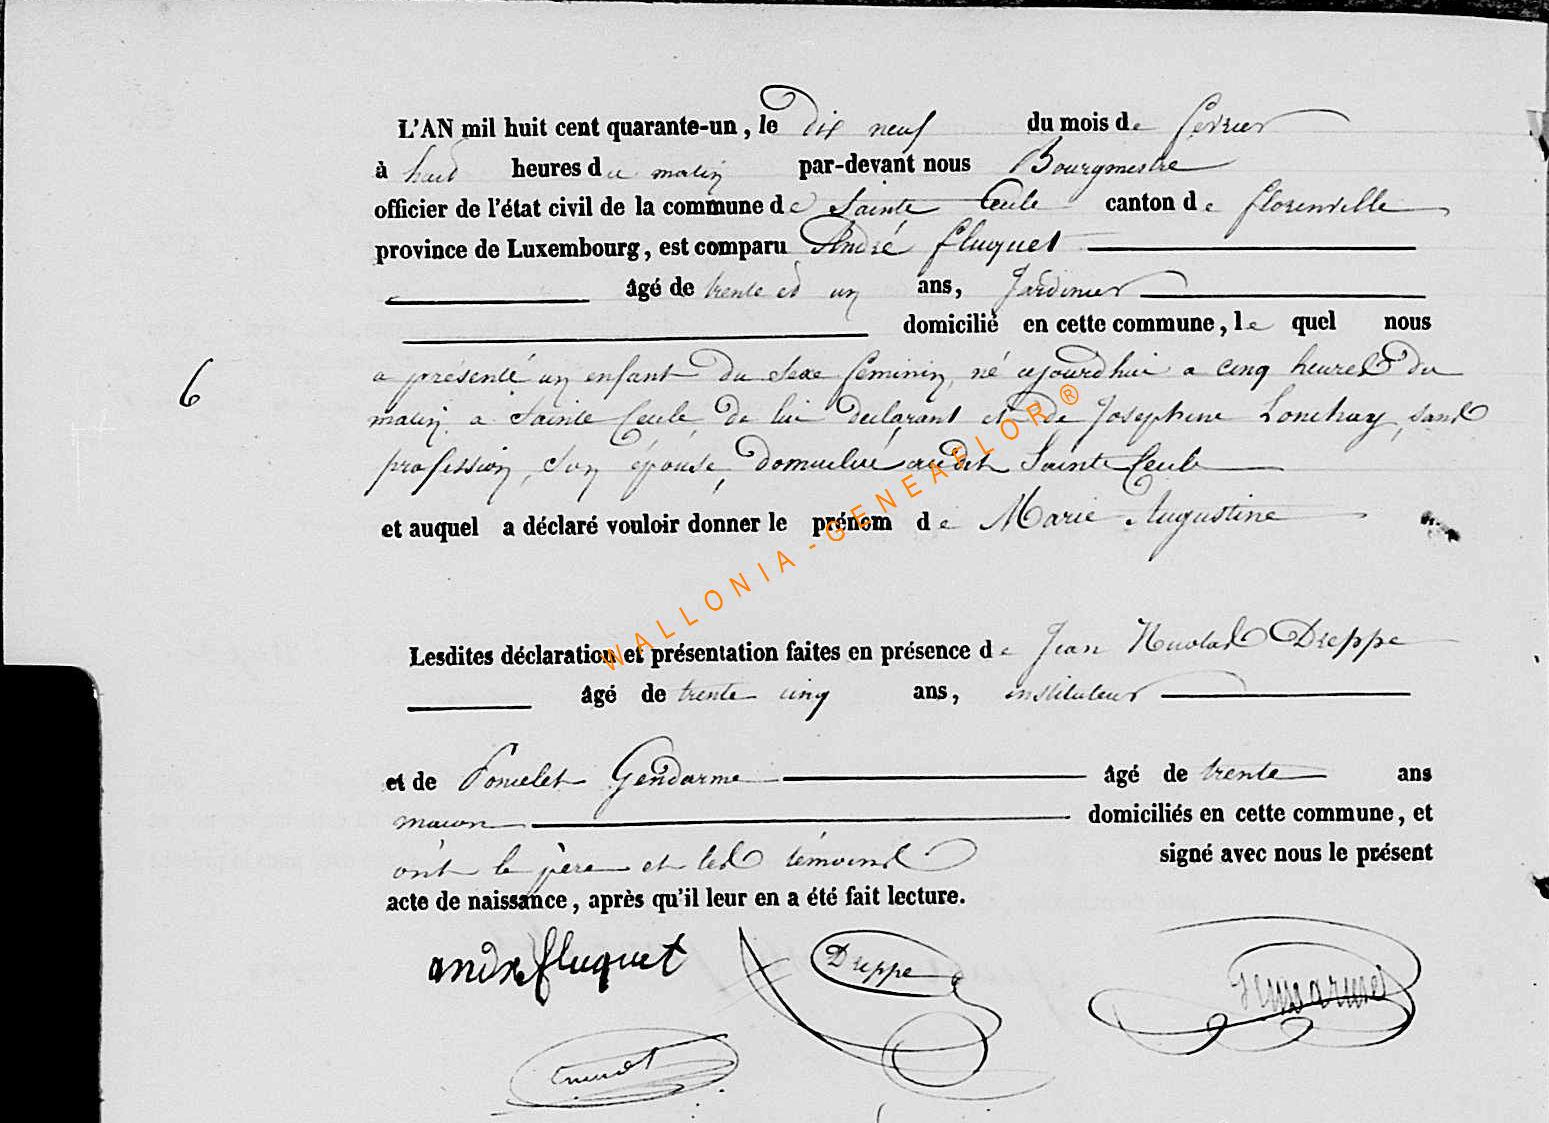 L'AN mil huit cent quarante-un, le dix neuf du mois de fevrier
à huit heures du matin par-devant nous Bourgmestre
officier de l'état civil de la commune de Sainte Cecile canton de florenville
province de Luxembourg, est comparu André fluquet
âgé de trente et un ans, Jardinier
domicilié en cette commune, le quel nous
6
a présenté un enfant du sexe feminin, né aujourdhui a cinq heures du
matin a Sainte Cecile de lui declarant et de Josephine Lonchay, sans
profession, son épouse, domicilié audit Sainte Cecile
et auquel a déclaré vouloir donner le prénom de Marie Augustine
WALLONIA-GENEAFLOR®
Lesdites déclaration et présentation faites en présence de Jean Nicolas Dreppe
âgé de trente cinq ans, instituteur
et de Poncelet Gendarme âgé de trente ans
macon domiciliés en cette commune, et
ont le père et les témoins signé avec nous le présent
acte de naissance, après qu'il leur en a été fait lecture.
andré fluquet Dreppe Gendarme